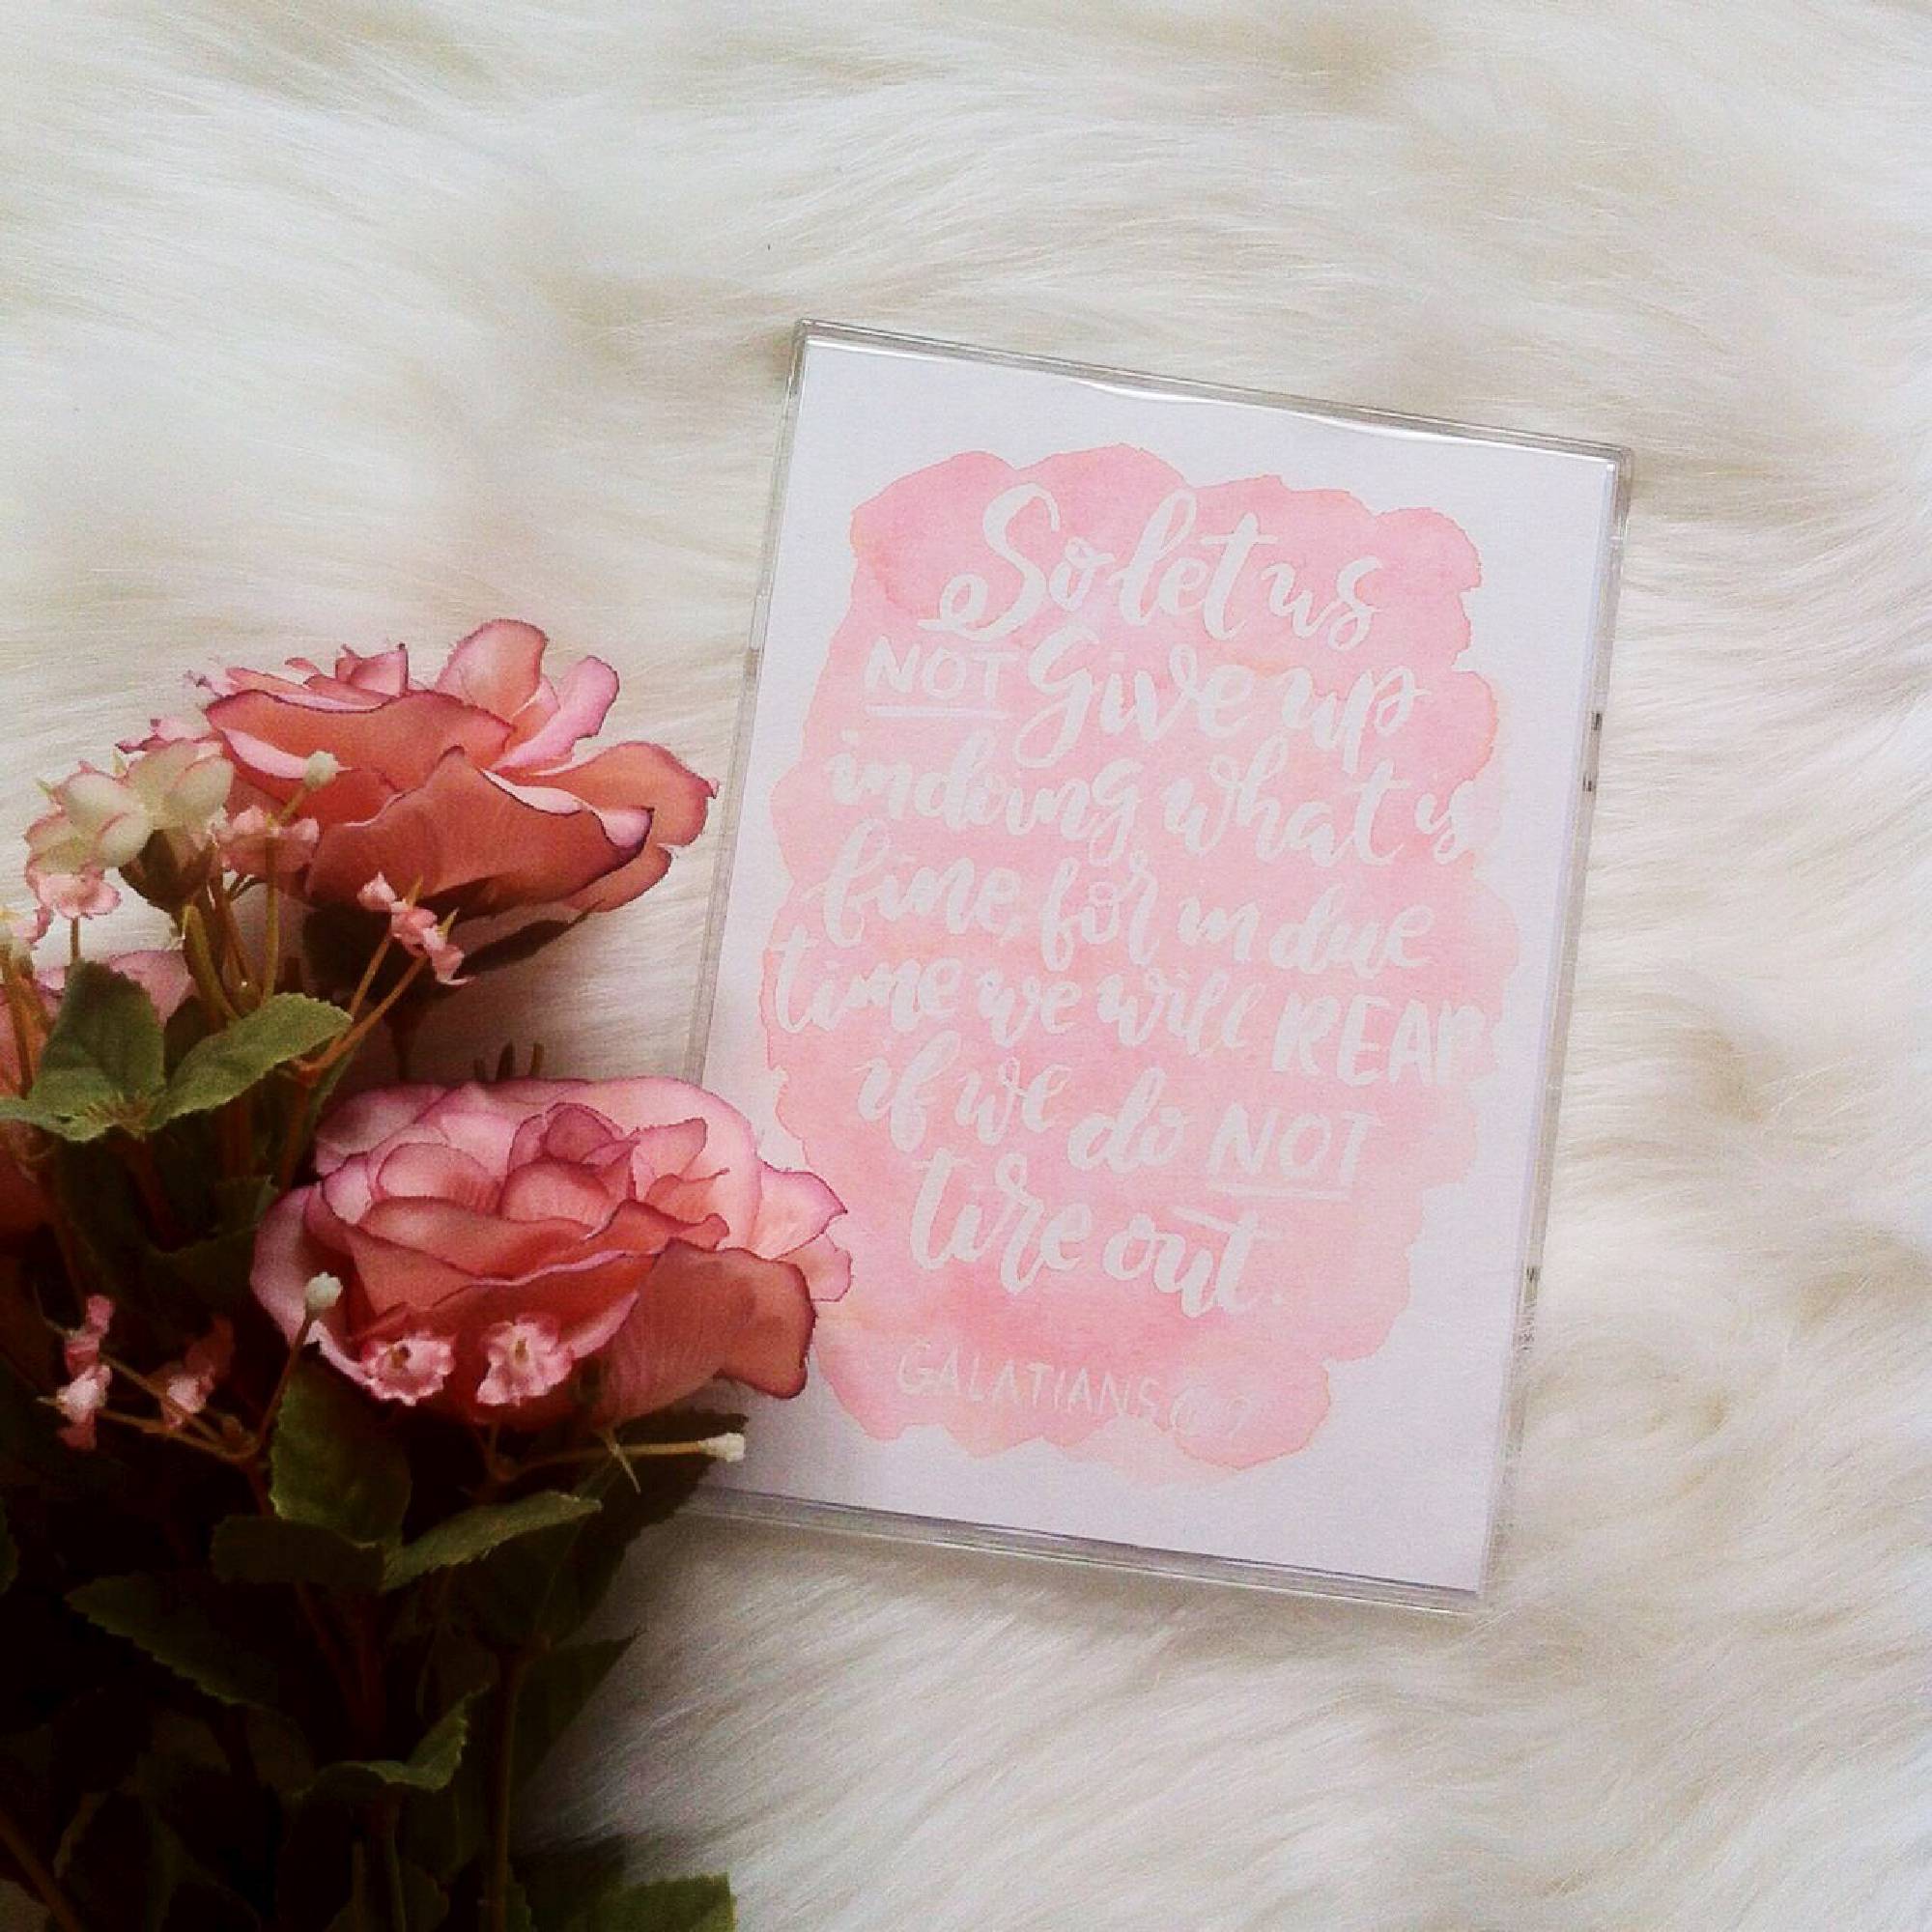 So let us
NOT Give up
in doing what is
fine, for in due
time we will REAP
if we do NOT
tire out.
GALATIANS 6:9